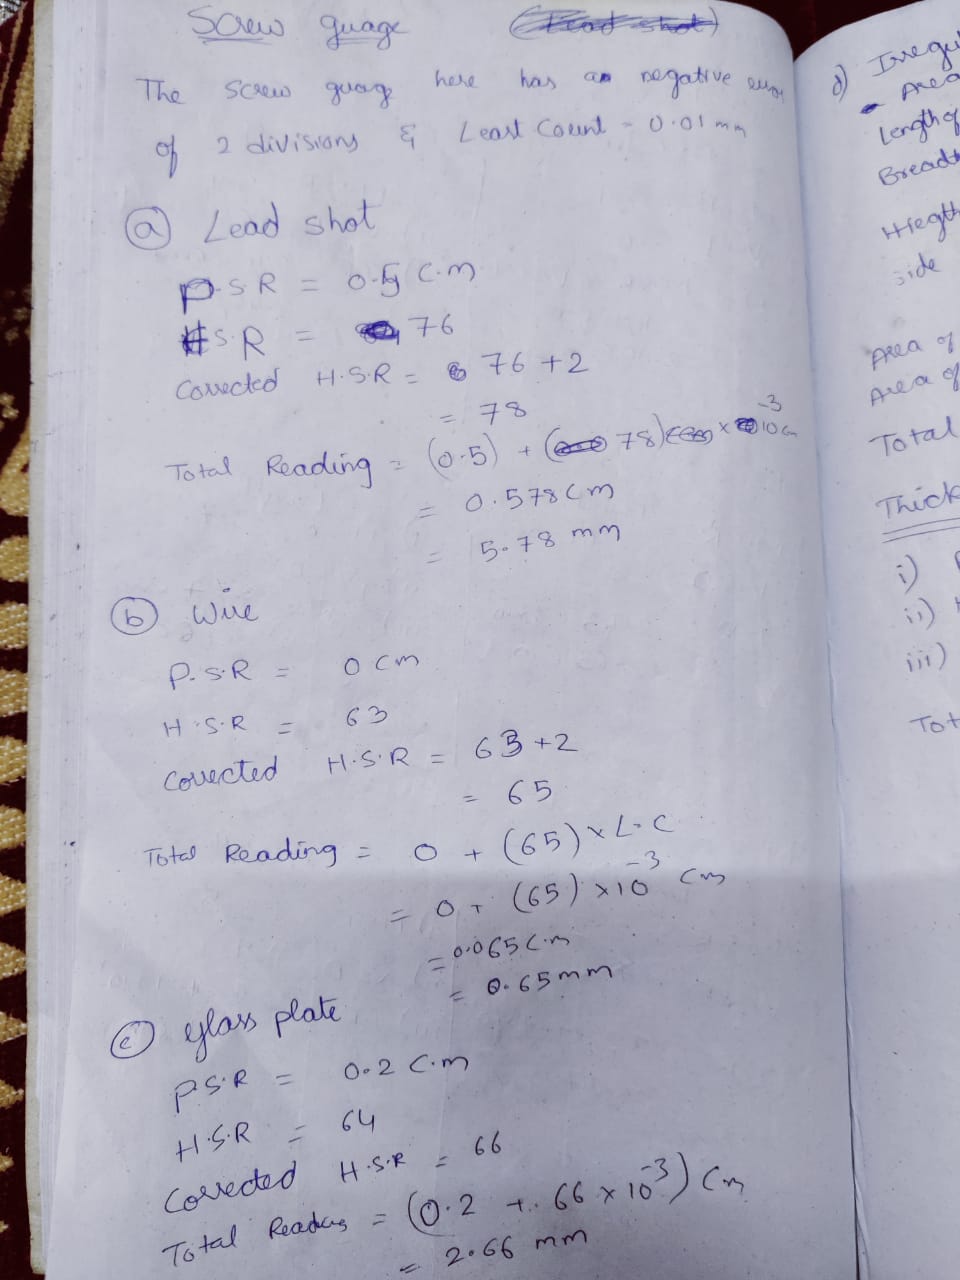 Screw guage
The screw guage here has an negative error
of 2 divisions & Least Count - 0.01 mm
(a) Lead shot
P.S.R = 0.5 C.m
H.S.R = 76
Corrected H.S.R = 76 + 2
= 78
Total Reading = (0.5) + (78) × 10⁻³ cm
= 0.578 cm
= 5.78 mm
(b) Wire
P.S.R = 0 cm
H.S.R = 63
Corrected H.S.R = 63 + 2
= 65
Total Reading = 0 + (65) × L.C
= 0 + (65) × 10⁻³ cm
= 0.065 C.m
= 0.65 mm
(c) glass plate
P.S.R = 0.2 C.m
H.S.R = 64
Corrected H.S.R = 66
Total Reading = (0.2 + 66 × 10⁻³) Cm
= 2.66 mm
d) Irregul
Area
Length of
Breadth
side
Area of
Area of
Total
Thick
i)
ii)
iii)
Tot